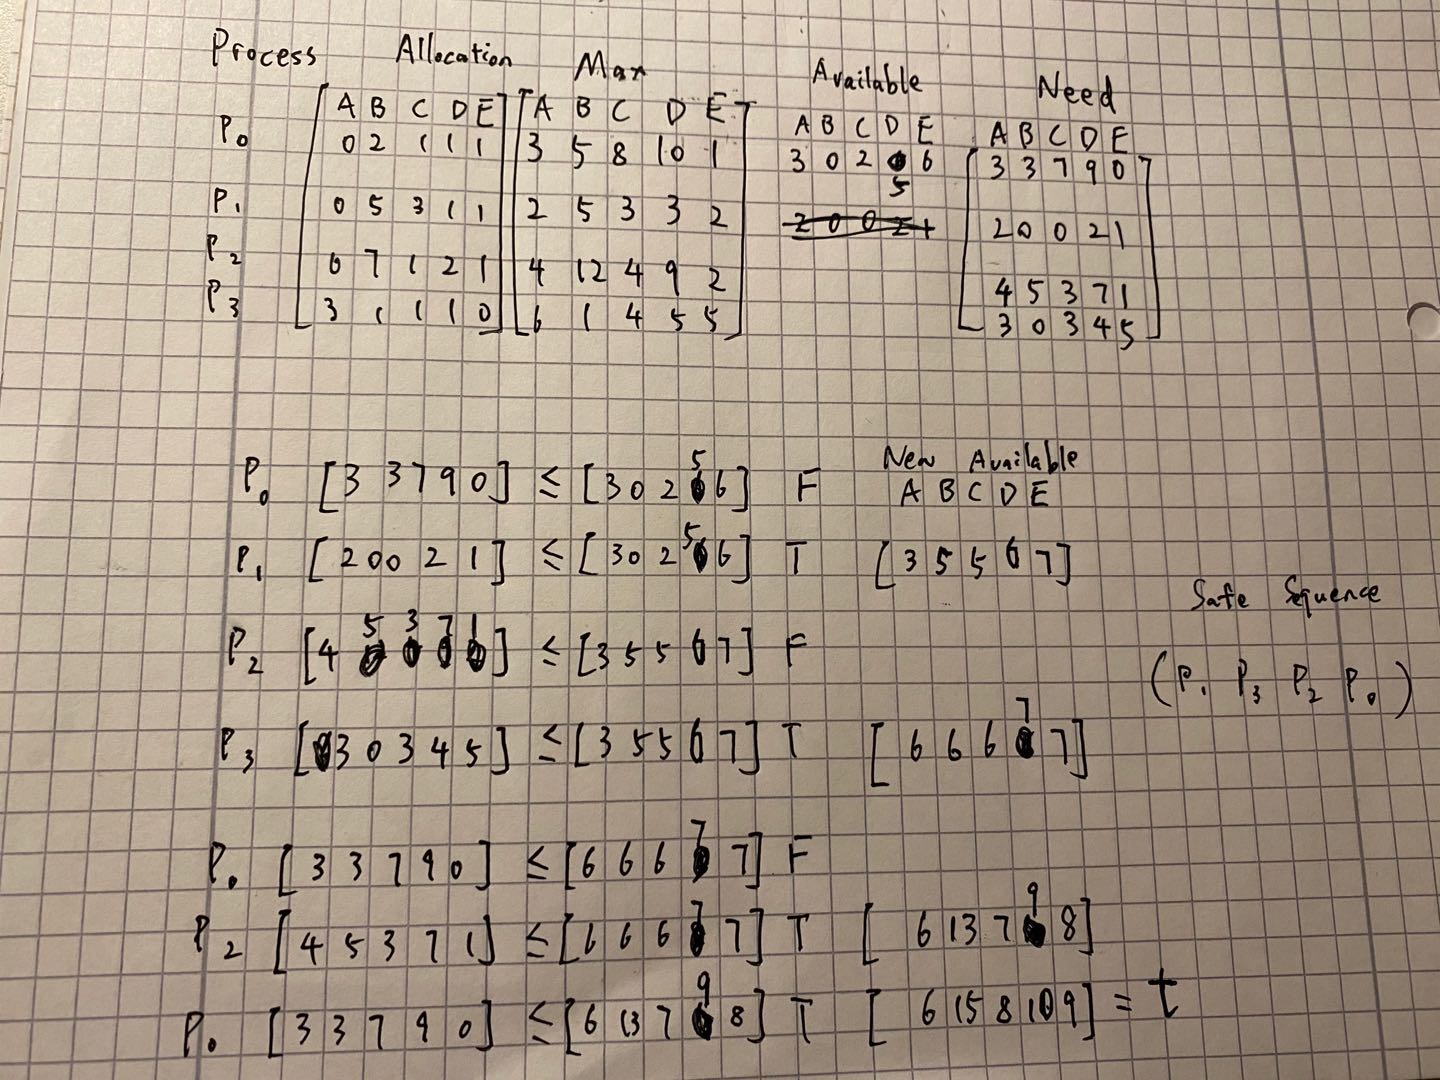 Process Allocation Max Available Need
A B C D E A B C D E A B C D E A B C D E
P0 0 2 1 1 1 3 5 8 10 1 3 0 2 5 6 3 3 7 9 0
P1 0 5 3 1 1 2 5 3 3 2 2 0 0 2 1 2 0 0 2 1
P2 0 7 1 2 1 4 12 4 9 2 4 5 3 7 1
P3 3 1 1 1 0 6 1 4 5 5 3 0 3 4 5
New Available
A B C D E
P0 [3 3 7 9 0] ≤ [3 0 2 5 6] F
P1 [2 0 0 2 1] ≤ [3 0 2 5 6] T [3 5 5 6 7]
Safe Sequence
P2 [4 5 3 7 1] ≤ [3 5 5 6 7] F
(P1 P3 P2 P0)
P3 [3 0 3 4 5] ≤ [3 5 5 6 7] T [6 6 6 7 7]
P0 [3 3 7 9 0] ≤ [6 6 6 7 7] F
P2 [4 5 3 7 1] ≤ [6 6 6 7 7] T [6 13 7 9 8]
P0 [3 3 7 9 0] ≤ [6 13 7 9 8] T [6 15 8 10 9] = t